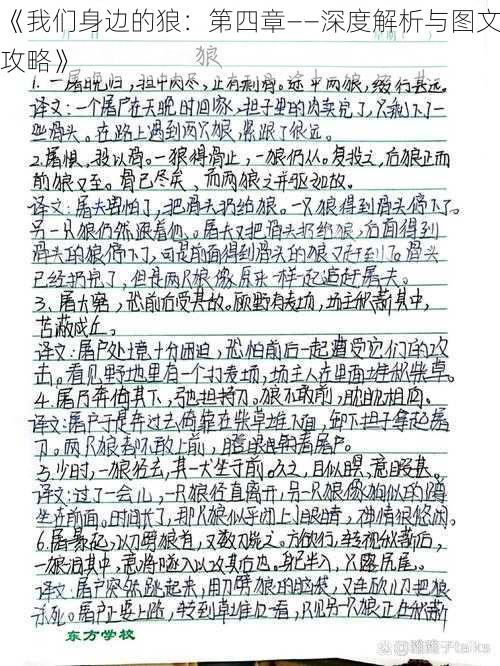 《我们身边的狼：第四章——深度解析与图文
攻略》
狼
1. 一屠晚归，担中肉尽，止有剩骨。途中两狼，缀行甚远。
译文：一个屠户在天晚时回家，担子里的肉卖完了，只剩下了一
些骨头。在路上遇到两只狼，紧跟了很远。
2. 屠惧，投以骨。一狼得骨止，一狼仍从。复投之，后狼止而
前狼又至。骨已尽矣，而两狼之并驱如故。
译文：屠夫害怕了，把骨头扔给狼。一只狼得到骨头停下了。
另一只狼仍然跟着他。屠夫又把骨头扔给狼，后面得到
骨头的狼停下了，可是前面得到骨头的狼又赶到了。骨头
已经扔完了，但是两只狼像原来一样一起追赶屠夫。
3、屠大窘，恐前后受其敌。顾野有麦场，场主积薪其中，
苫蔽成丘。
译文：屠户处境十分困迫，恐怕前后一起遭受它们的攻
击。看见野地里有一个打麦场，场主人在里面堆积柴草。
4. 屠乃奔倚其下，弛担持刀。狼不敢前，眈眈相向。
译文：屠户于是奔过去倚靠在柴草堆下面，卸下担子拿起屠
刀。两只狼都不敢上前，瞪眼朝着屠户。
5、少时，一狼径去，其一犬坐于前。久之，目似瞑，意暇甚。
译文：过了一会儿，一只狼径直离开，另一只狼像狗似的蹲
坐在前面。时间长了，那只狼似乎闭上了眼睛，神情很悠闲。
6. 屠暴起，以刀劈狼首，又数刀毙之。方欲行，转视积薪后，
一狼洞其中，意将隧入以攻其后也。身已半入，只露尻尾。
译文：屠户突然跳起来，用刀劈狼的脑袋，又连砍几刀把狼
杀死。屠户正要上路，转到草堆后一看，只见另一只狼正在积薪
东方学校